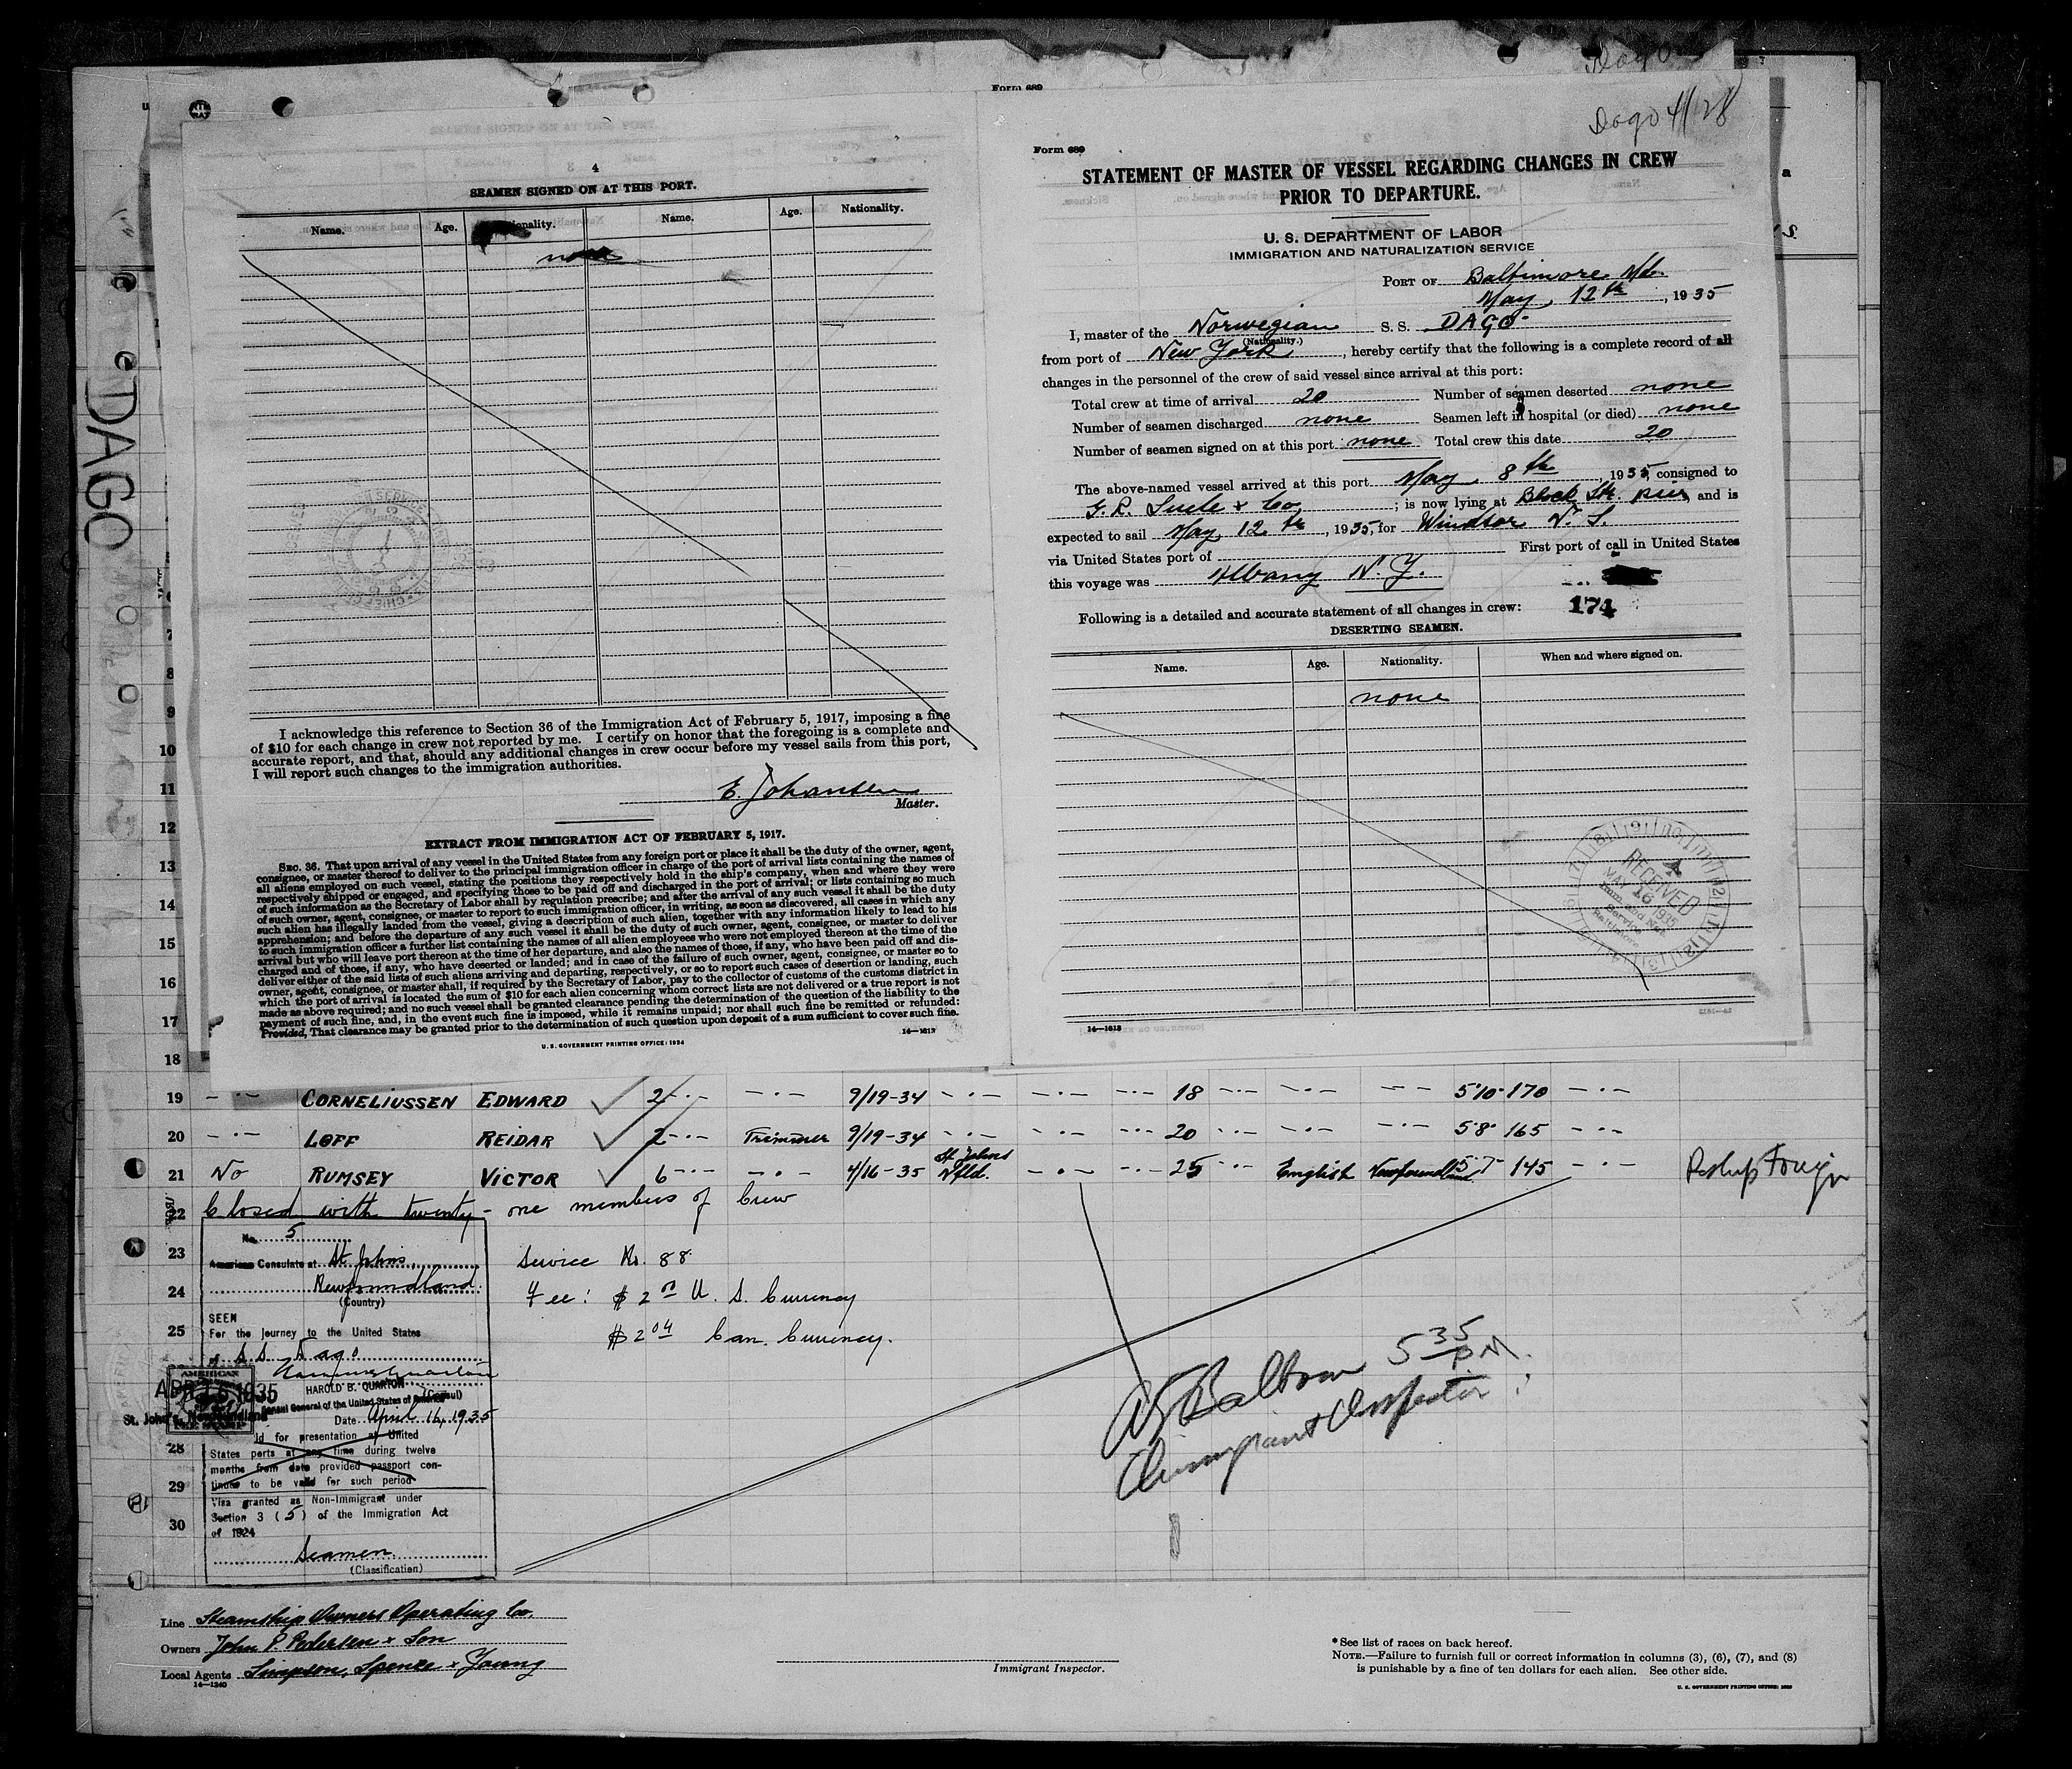 Dago
Dago 4/28
Form 689
4
SEAMEN SIGNED ON AT THIS PORT.
Name. Age. Nationality. Name. Age. Nationality.
none
I acknowledge this reference to Section 36 of the Immigration Act of February 5, 1917, imposing a fine
of $10 for each change in crew not reported by me. I certify on honor that the foregoing is a complete and
accurate report, and that, should any additional changes in crew occur before my vessel sails from this port,
I will report such changes to the immigration authorities.
E. Johansen
Master.
EXTRACT FROM IMMIGRATION ACT OF FEBRUARY 5, 1917.
SEC. 36. That upon arrival of any vessel in the United States from any foreign port or place it shall be the duty of the owner, agent,
consignee, or master thereof to deliver to the principal immigration officer in charge of the port of arrival lists containing the names of
all aliens employed on such vessel, stating the positions they respectively hold in the ship's company, when and where they were
respectively shipped or engaged, and specifying those to be paid off and discharged in the port of arrival; or lists containing so much
of such information as the Secretary of Labor shall by regulation prescribe; and after the arrival of any such vessel it shall be the duty
of such owner, agent, consignee, or master to report to such immigration officer, in writing, as soon as discovered, all cases in which any
such alien has illegally landed from the vessel, giving a description of such alien, together with any information likely to lead to his
apprehension; and before the departure of any such vessel it shall be the duty of such owner, agent, consignee, or master to deliver
to such immigration officer a further list containing the names of all alien employees who were not employed thereon at the time of the
arrival but who will leave port thereon at the time of her departure, and also the names of those, if any, who have been paid off and dis-
charged and of those, if any, who have deserted or landed; and in case of the failure of such owner, agent, consignee, or master so to
deliver either of the said lists of such aliens arriving and departing, respectively, or so to report such cases of desertion or landing, such
owner, agent, consignee, or master shall, if required by the Secretary of Labor, pay to the collector of customs of the customs district in
which the port of arrival is located the sum of $10 for each alien concerning whom correct lists are not delivered or a true report is not
made as above required; and no such vessel shall be granted clearance pending the determination of the question of the liability to the
payment of such fine, and, in the event such fine is imposed, while it remains unpaid; nor shall such fine be remitted or refunded:
Provided, That clearance may be granted prior to the determination of such question upon deposit of a sum sufficient to cover such fine.
14—1613
U. S. GOVERNMENT PRINTING OFFICE: 1934
Form 689
STATEMENT OF MASTER OF VESSEL REGARDING CHANGES IN CREW
PRIOR TO DEPARTURE.
U. S. DEPARTMENT OF LABOR
IMMIGRATION AND NATURALIZATION SERVICE
PORT OF Baltimore Md.
May 12th, 1935
I, master of the Norwegian S. S. DAGO
(Nationality.)
from port of New York, hereby certify that the following is a complete record of all
changes in the personnel of the crew of said vessel since arrival at this port:
Total crew at time of arrival 20 Number of seamen deserted none
Number of seamen discharged none Seamen left in hospital (or died) none
Number of seamen signed on at this port none Total crew this date 20
The above-named vessel arrived at this port May 8th, 1935, consigned to
; is now lying at Block Str. pier and is
expected to sail May 12th, 1935, for Windsor N. S.
via United States port of First port of call in United States
this voyage was Albany N. Y.
174
Following is a detailed and accurate statement of all changes in crew:
DESERTING SEAMEN.
Name. Age. Nationality. When and where signed on.
none
RECEIVED
MAY 16 1935
Imm. and Nat.
Service
Baltimore
14—1613
DAGO
7
8
9
10
11
12
13
14
15
16
17
18
19 — · — CORNELIUSSEN EDWARD 2 - · - — · — 9/19-34 — · — — · — — · — 18 — · — — · — — · — 5'10" 170 — · —
20 — · — LOFF REIDAR 2 - · - Trimmer 9/19-34 — · — — · — — · — 20 — · — — · — — · — 5'8" 165 — · —
21 No RUMSEY VICTOR 6 - · - — · — 4/16-35 St Johns Nfld. — · — — · — 25 — · — English Newfoundland 5'7" 145 — · — Reship Foreign
22 Closed with twenty-one members of Crew
No. 5
23
American Consulate at St Johns,
Newfoundland
(Country)
24
SEEN
25
For the journey to the United States
S.S. Dago
HAROLD B. QUARTON (Consul)
Consul General of the United States of America
APR 16 1935
AMERICAN
St. John's, Newfoundland
Date April 16, 1935
ld for presentation at United
States ports at any time during twelve
months from date provided passport con-
tinues to be valid for such period
28
29
Visa granted as Non-Immigrant under
Section 3 (5) of the Immigration Act
of 1924
30
Seamen
(Classification)
Service No. 88
Fee: $2 00 U. S. Currency
$2 04 Can. Currency.
5 35 P.M.
Immigrant Inspector
Line Steamship Owners Operating Co.
Owners John P. Pedersen & Son
Local Agents Simpson, Spence & Young
14—1240
Immigrant Inspector.
*See list of races on back hereof.
NOTE.—Failure to furnish full or correct information in columns (3), (6), (7), and (8)
is punishable by a fine of ten dollars for each alien. See other side.
U. S. GOVERNMENT PRINTING OFFICE: 1933